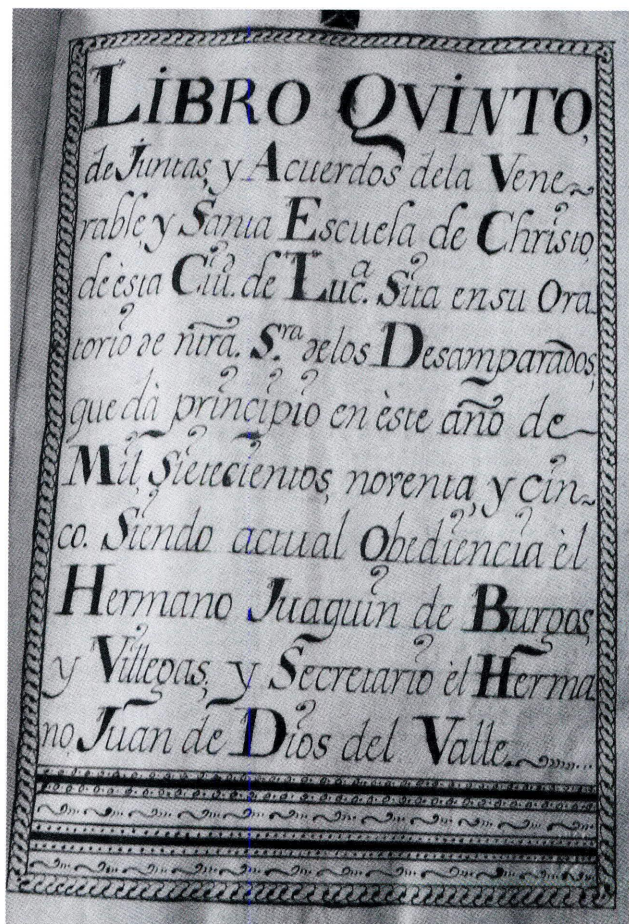 LiBRO QViNTO,
de Juntas, y Acuerdos dela Vene~
rable, y Santa Escuela de Christo,
de èsta Ciu. de Luc.ª Sita en su Ora
torio de ñtra. S.ra de los Desamparados,
que dà principio en èste año de
Mil, Sietecientos, noventa, y cin~
co. Siendo actual Obediencia èl
Hermano Juaquin de Burgos,
y Villegas, y Secretario èl Herma
no, Juan de Dios del Valle.